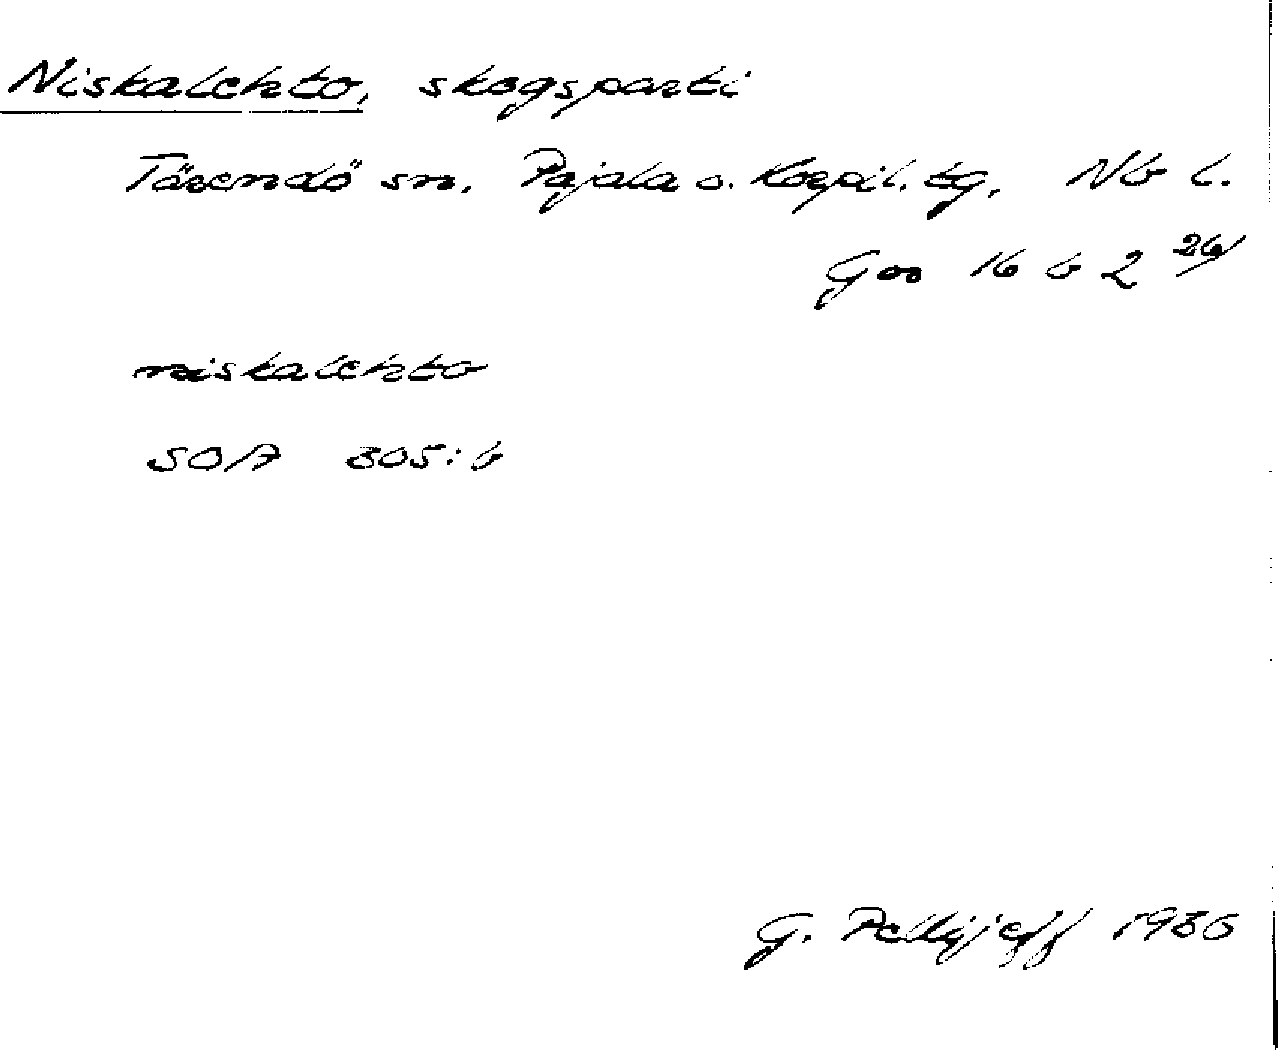 Niskalehto, skogsparti
Tärendö sn. Pajala o. Korpil. tg, Nb l.
Goo 16 b 2 26/
niskalehto
SOA 805:6
G. Pellijeff 1986